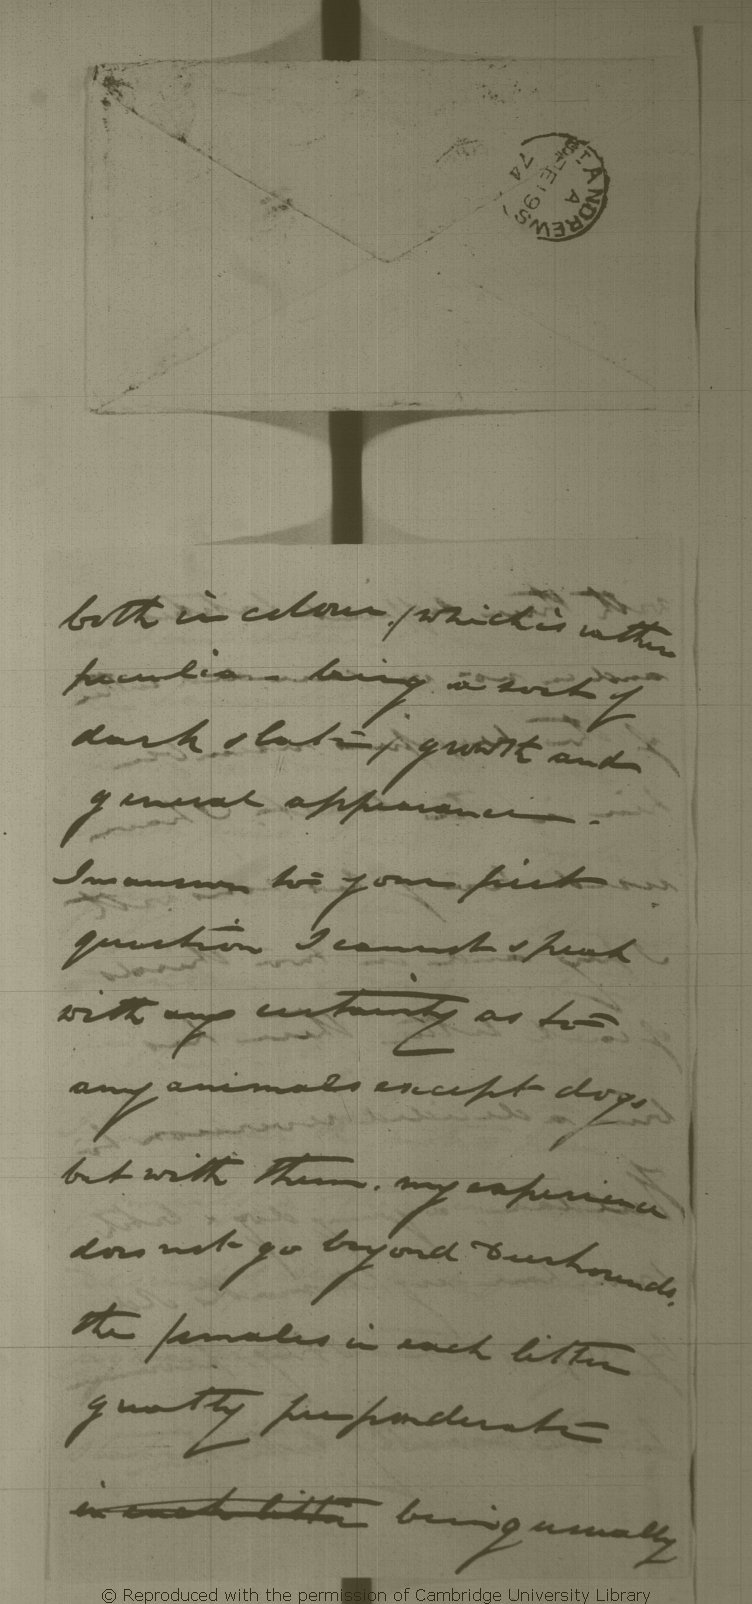 ST ANDREWS
A
FE 19
74
both in colour, (which is rather
peculiar – being a sort of
dark slate,) growth and
general appearance.
In answer to your first
question I cannot speak
with any certainty as to
any animals except dogs
but with them. my experience
does not go beyond Deerhounds.
the females in each litter
greatly preponderate
in each litter being usually
© Reproduced with the permission of Cambridge University Library